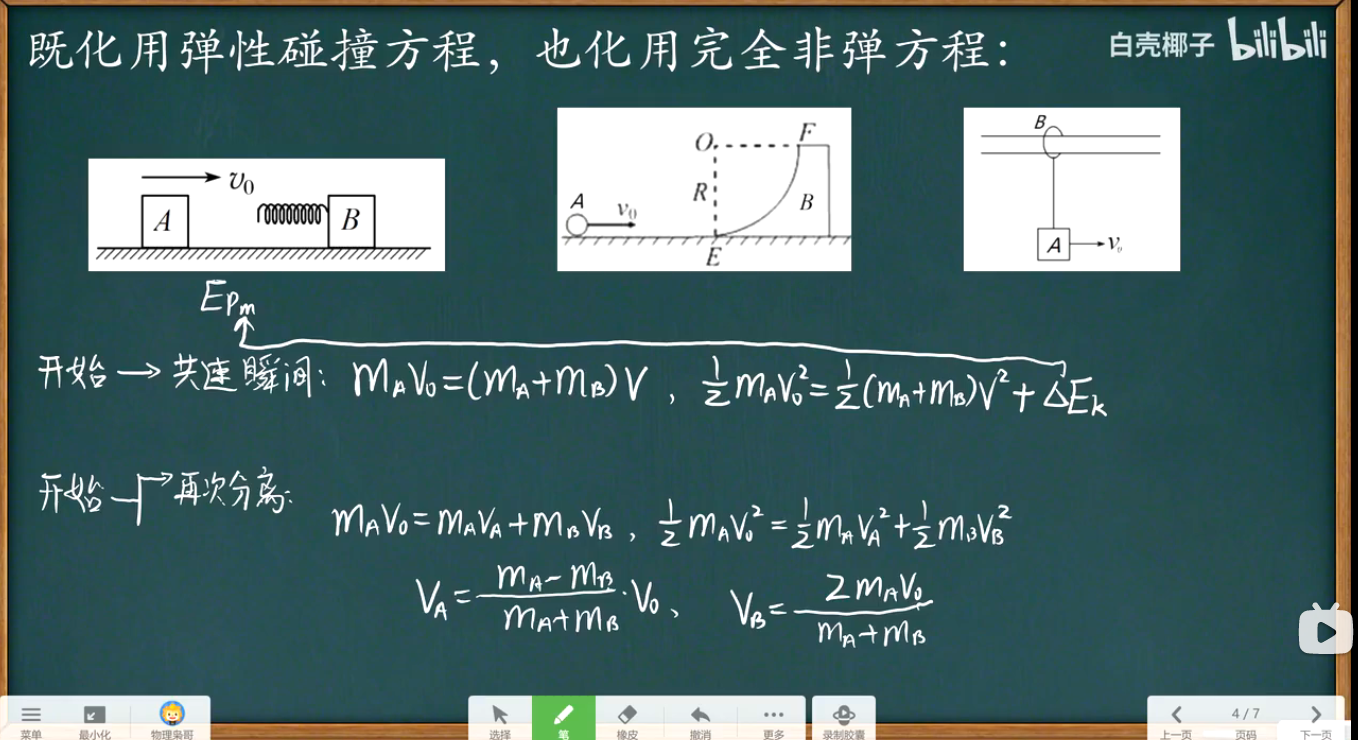 既化用弹性碰撞方程，也化用完全非弹方程：
白壳椰子 bilibili
v₀
A
B
O
F
R
B
A
v₀
E
B
A
v₀
Epₘ
开始→共速瞬间：mAV₀=(mA+mB)V，½mAV₀²=½(mA+mB)V²+ΔEk
开始→再次分离：
mAV₀=mAVA+mBVB，½mAV₀²=½mAVA²+½mBVB²
VA=(mA-mB)/(mA+mB)·V₀、VB=2mAV₀/(mA+mB)
菜单
最小化
物理枭哥
选择
笔
橡皮
撤消
更多
录制胶囊
上一页
4/7
页码
下一页